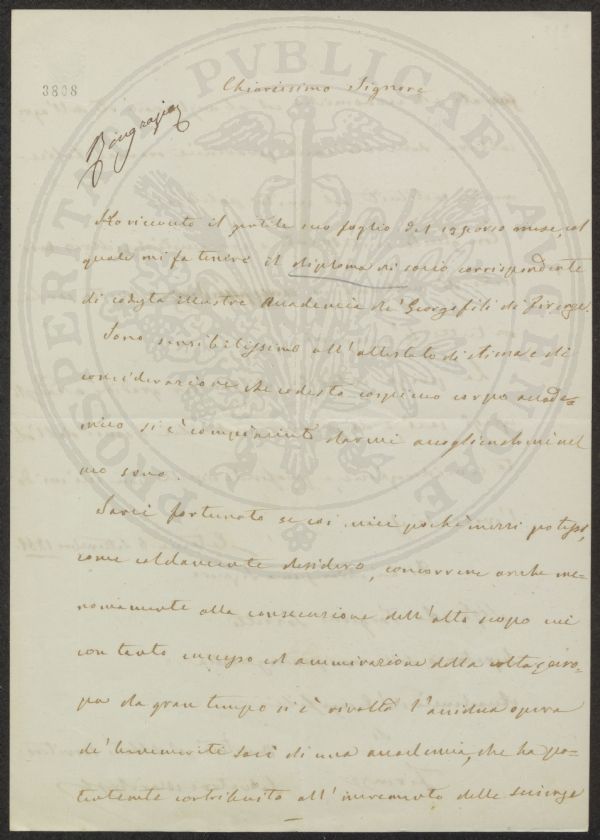 3808
Chiarissimo Signore
Ringrazia
Ho ricevuto il gentile suo foglio del 13 scorso mese, col
quale mi fa tenere il diploma di socio corrispondente
di codesta illustre Accademia de' Georgofili di Firenze.
Sono sensibilissimo all'attestato di stima e di
considerazione che codesto cospicuo corpo accade=
mico si è compiaciuto darmi accogliendomi nel
suo seno.
Sarei fortunato se coi miei pochi mezzi potessi,
come caldamente desidero, concorrere anche me-
nomamente alla consecuzione dell'alto scopo cui
con tanto successo ed ammirazione della colta Euro-
pa da gran tempo si è rivolta l'assidua opera
de' benemeriti soci di una accademia, che ha po-
tentemente contribuito all'incremento delle scienze
PROSPERITATI PVBLICAE AVGENDAE